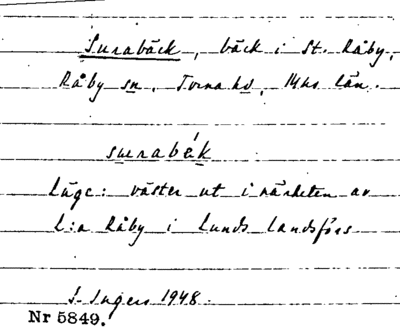 Surabäck, bäck i St. Råby,
Råby sn. Torna hd, Mhs län.
surabäk
Läge: väster ut i närheten av
L:a Råby i Lunds landsförs
I. Ingers 1948.
Nr 5849.